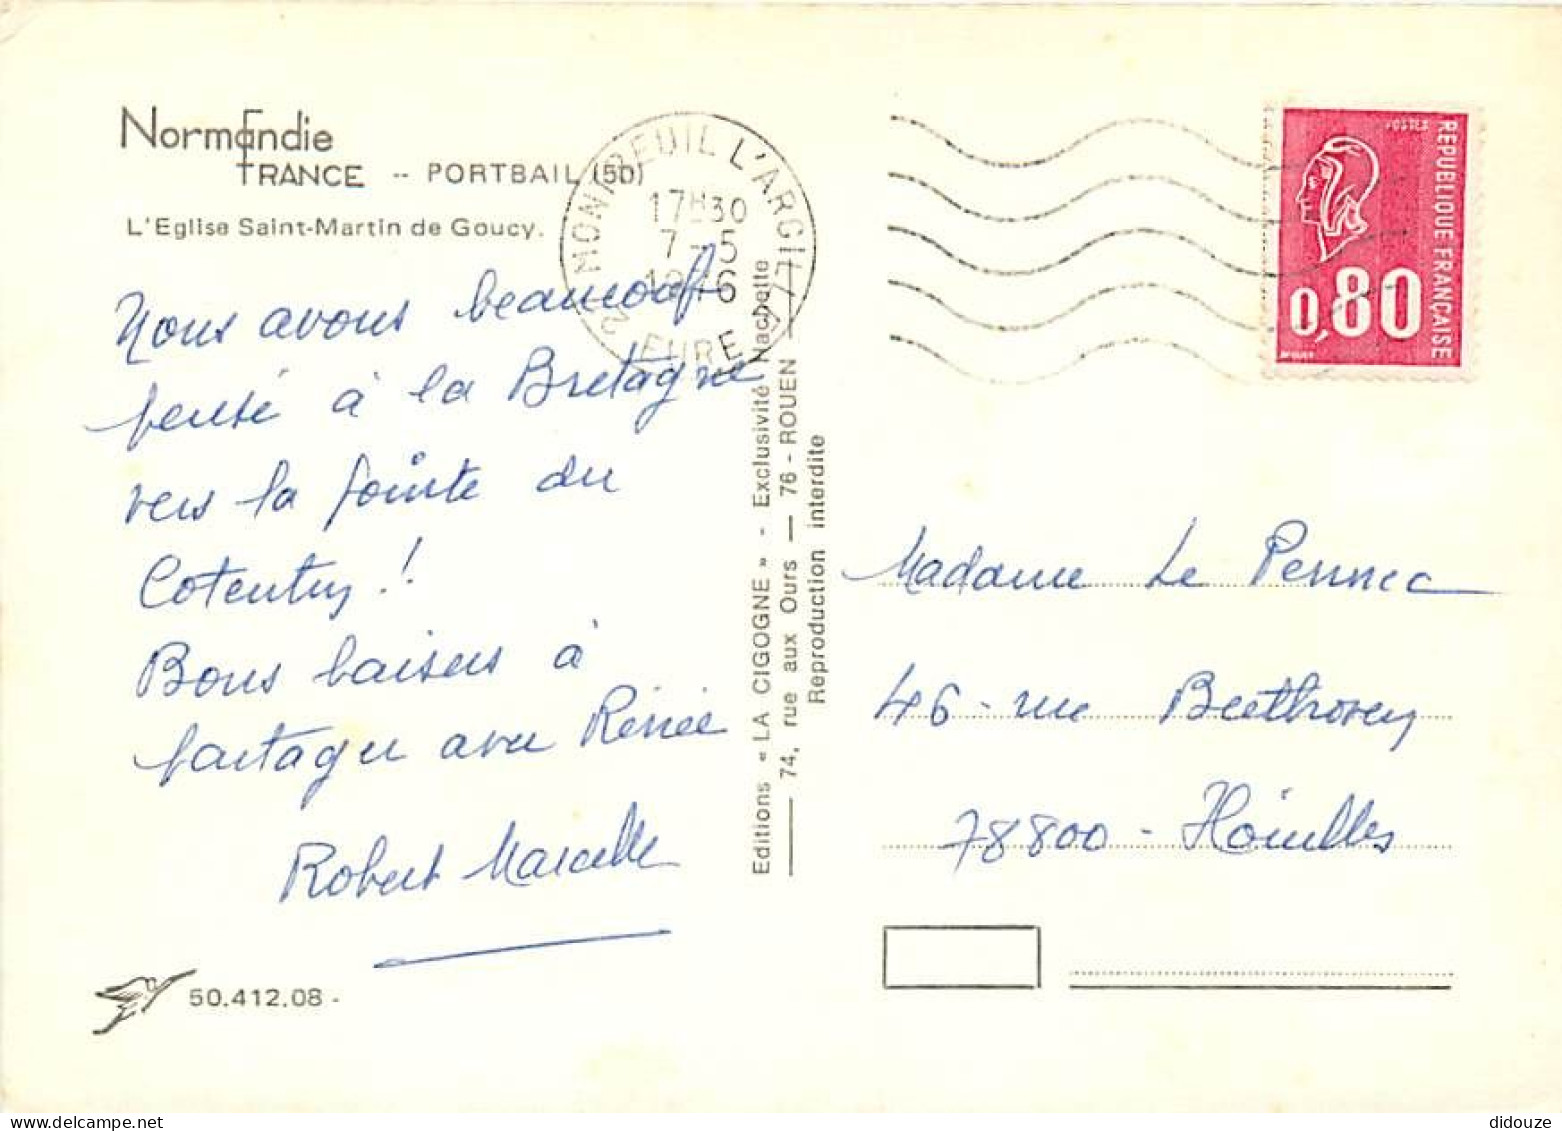 Normandie
FRANCE -- PORTBAIL (50)
L'Eglise Saint-Martin de Goucy.
Nous avons beaucoup
pensé à la Bretagne
vers la pointe du
Cotentin !
Bons baisers à
partager avec Rénée
Robert Marcelle
50.412.08 -
27 MONTREUIL L'ARGILLE
17H30
7 - 5
1976
EURE
Editions « LA CIGOGNE » - Exclusivité Hachette
74, rue aux Ours — 76 - ROUEN
Reproduction interdite
POSTES
REPUBLIQUE FRANÇAISE
0,80
Madame Le Pennec
46 - rue Beethoven
78800 - Houilles
didouze